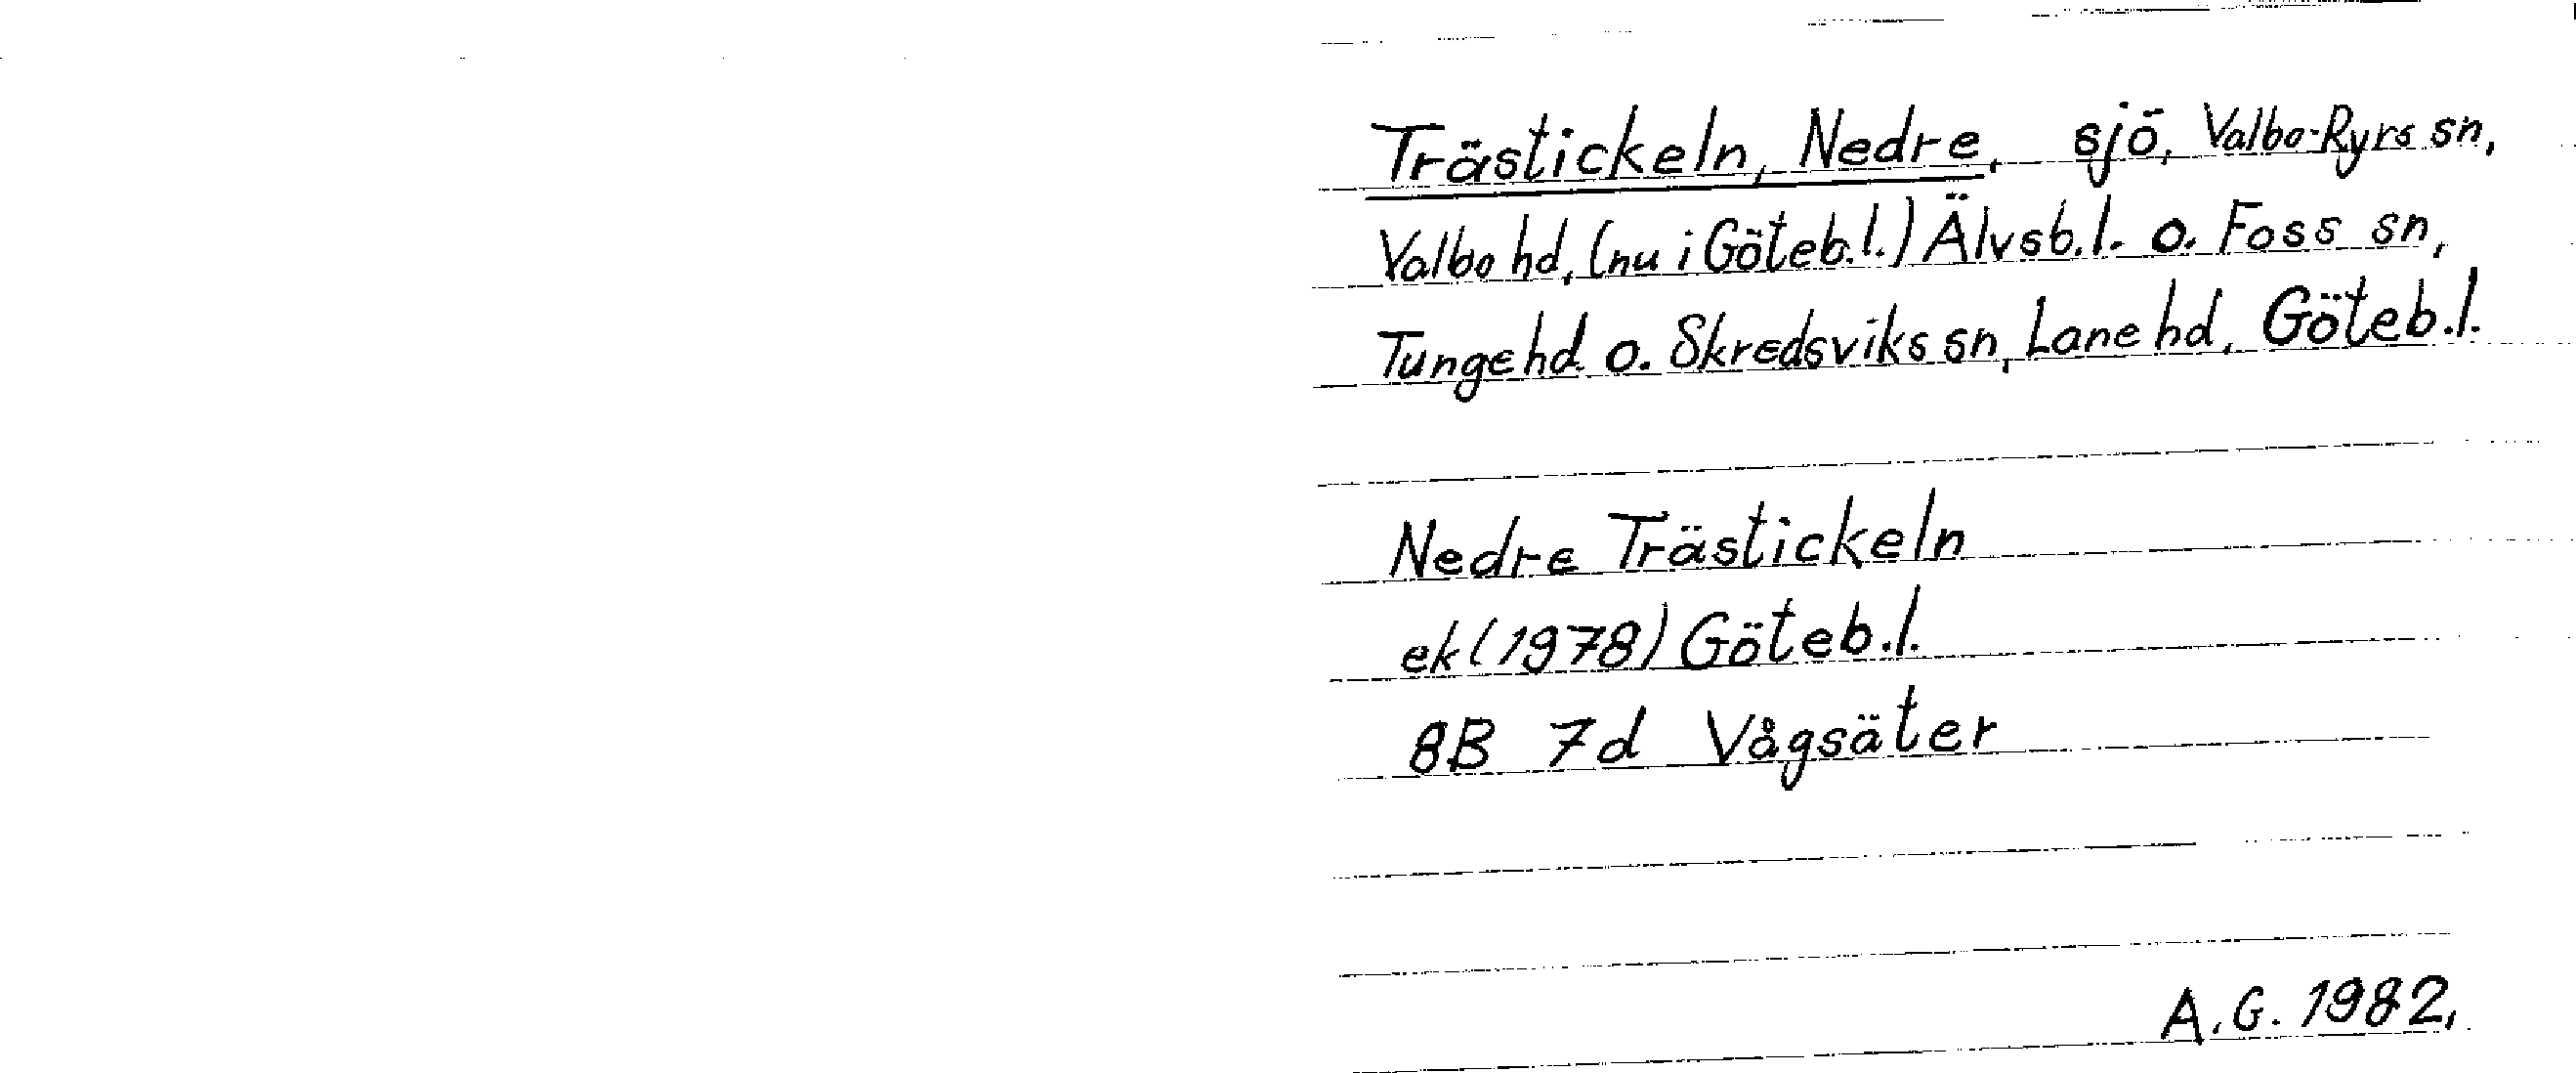 Trästickeln, Nedre, sjö, Valbo-Ryrs sn,
Valbo hd, (nu i Göteb.l.) Älvsb.l. o. Foss sn,
Tunge hd o. Skredsviks sn, Lane hd, Göteb.l.
Nedre Trästickeln
ek (1978) Göteb.l.
8B 7d Vågsäter
A.G. 1982,